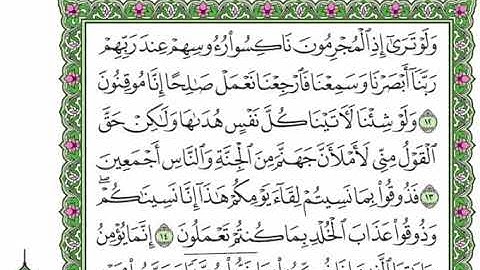 وَلَوْ تَرَىٰٓ إِذِ ٱلْمُجْرِمُونَ نَاكِسُوا۟ رُءُوسِهِمْ عِندَ رَبِّهِمْ
رَبَّنَآ أَبْصَرْنَا وَسَمِعْنَا فَٱرْجِعْنَا نَعْمَلْ صَٰلِحًا إِنَّا مُوقِنُونَ
١٢ وَلَوْ شِئْنَا لَـَٔاتَيْنَا كُلَّ نَفْسٍ هُدَىٰهَا وَلَٰكِنْ حَقَّ
ٱلْقَوْلُ مِنِّى لَأَمْلَأَنَّ جَهَنَّمَ مِنَ ٱلْجِنَّةِ وَٱلنَّاسِ أَجْمَعِينَ
١٣ فَذُوقُوا۟ بِمَا نَسِيتُمْ لِقَآءَ يَوْمِكُمْ هَٰذَآ إِنَّا نَسِينَٰكُمْ ۖ
وَذُوقُوا۟ عَذَابَ ٱلْخُلْدِ بِمَا كُنتُمْ تَعْمَلُونَ ١٤ إِنَّمَا يُؤْمِنُ